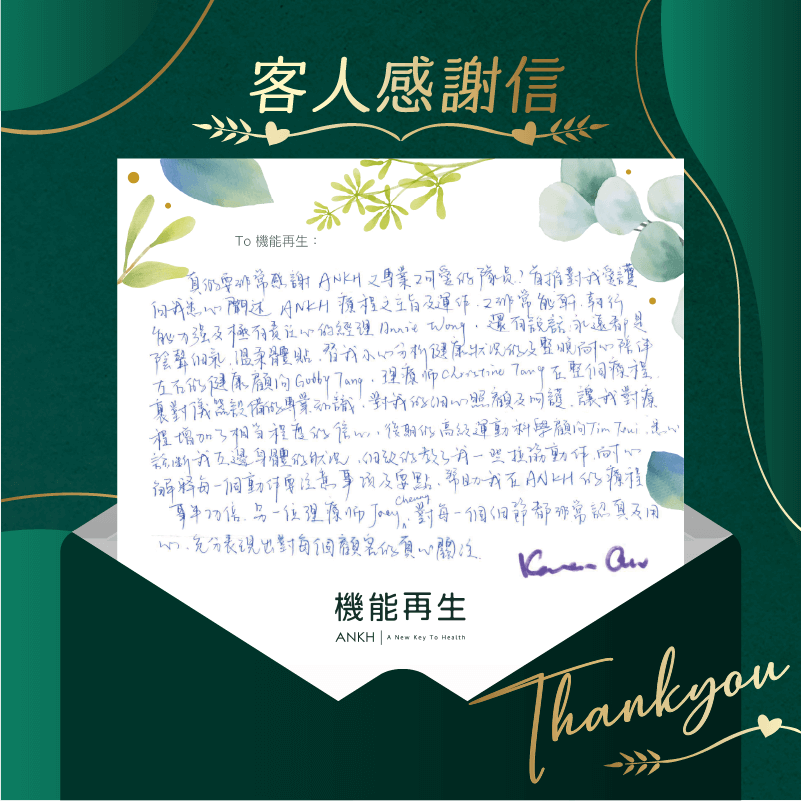 客人感謝信
To 機能再生：
真的要非常感謝 ANKH 又專業又可愛的隊員！首推對我愛護
向我悉心闡述 ANKH 療程之主旨及運作，又非常能幹，執行
能力強及極有責任心的經理 Annie Wong，還有說話永遠都是
陰聲細氣，溫柔體貼，替我小心分析健康狀況的及整晚耐心陪伴
左右的健康顧問 Gobby Tang，理療師 Christine Tang 在整個療程
裏對儀器設備的專業知識，對我的細心照顧及呵護，讓我對療
程增加了相當程度的信心，後期的高級運動科學顧問 Tim Tsui，悉心
診斷我左邊身體的狀況，細緻的教了我一些拉筋動作，耐心
解釋每一個動作要注意事項及要點，幫助我在 ANKH 的療程
事半功倍，另一位理療師 Joey Cheung，對每一個細節都非常認真及用
心，充分表現出對每個顧客的真心關注
機能再生
ANKH | A New Key To Health
Thankyou